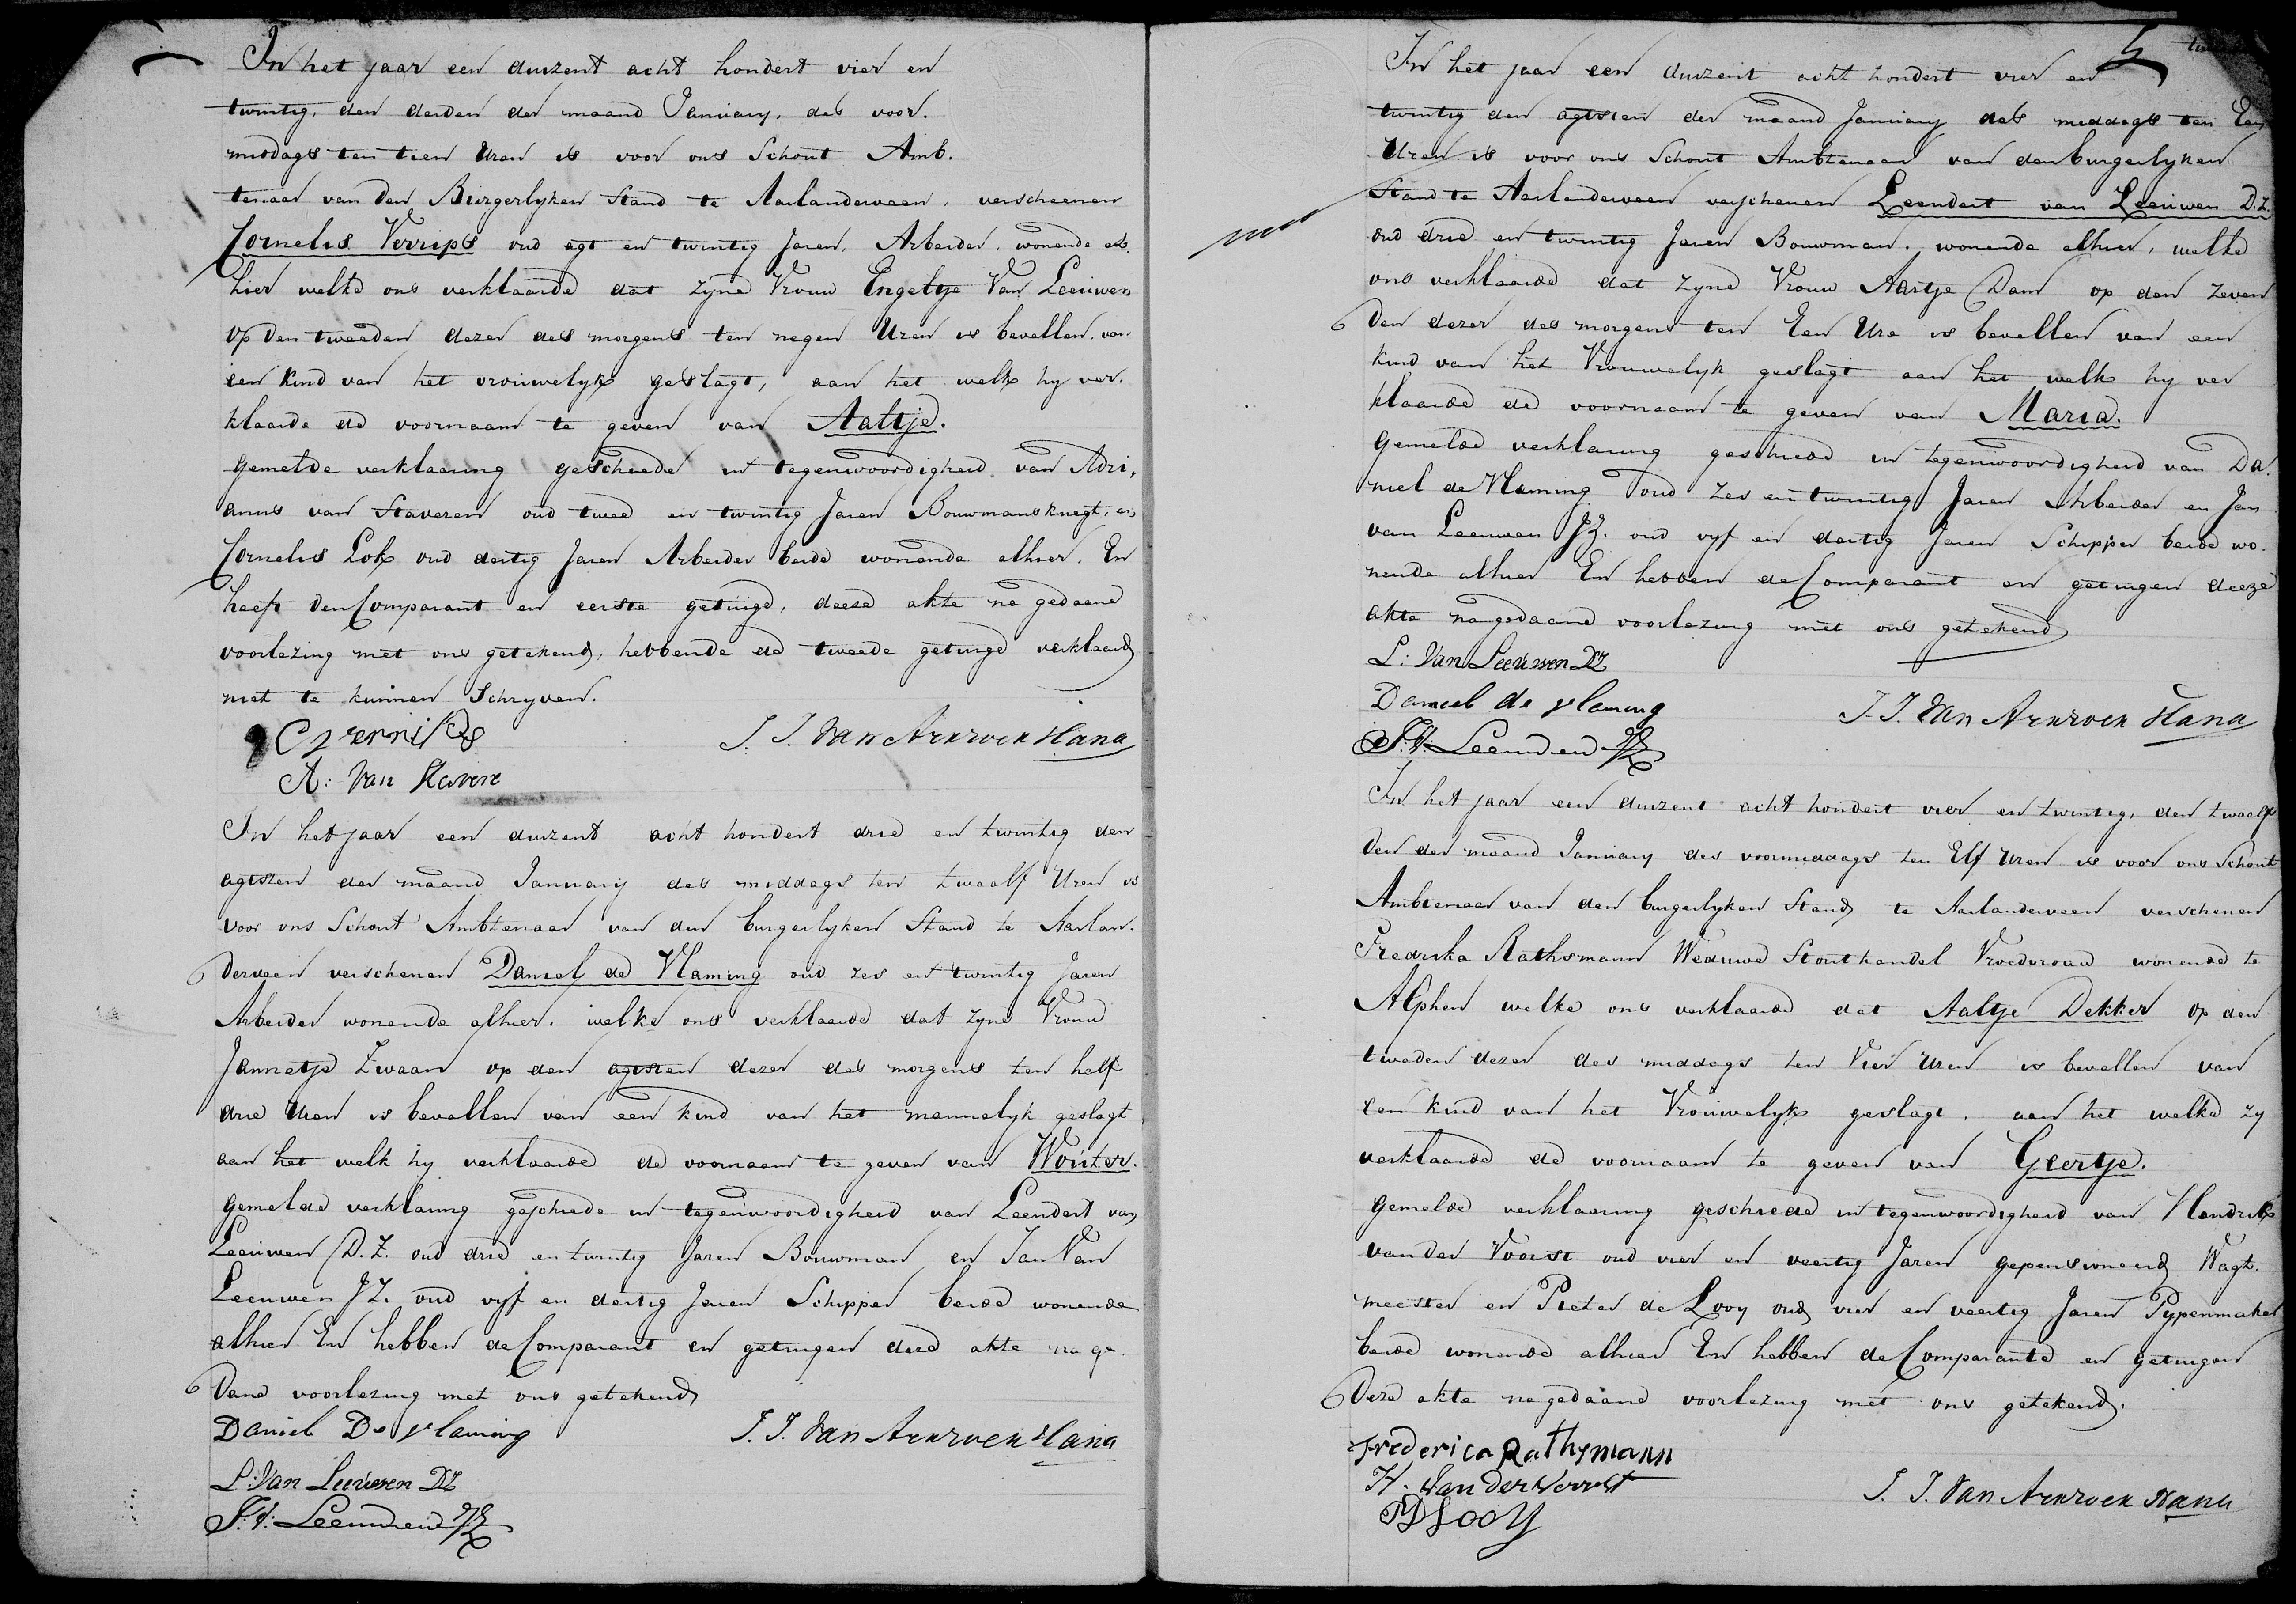 In het jaar een duizent acht hondert vier en
twintig, den derden der maand January, des voor.
middags ten tien Uren is voor ons Schout Amb.
tenaar van den Burgerlyken Stand te Aarlanderveen, verscheenen
Cornelis Verrips oud agt en twintig Jaren, Arbeider, wonende al.
hier welke ons verklaarde dat zyne Vrouw Engeltje Van Leeuwen
op den tweeden dezer des morgens ten negen Uren is bevallen van
een kind van het vrouwelyk geslagt, aan het welk hy ver.
klaarde de voornaam te geven van Aaltje.
gemelde verklaaring geschiede in tegenwoordigheid van Adri,
anus van Staveren oud twee en twintig Jaren Bouwmansknegt, en
Cornelis Lok oud dertig Jaren Arbeider beide wonende alhier. En
heeft den Comparant en eerste getuige, deese akte na gedaane
voorlezing met ons getekend, hebbende de tweede getuige verklaard
niet te kunnen Schryven.
C verrips
J. J. Van Arkroen Hana
A: Van Stavere
In het jaar een duizent acht hondert drie en twintig den
agtsten der maand January des middags ten twaalf Uren is
voor ons Schout Ambtenaar van den burgerlyken Stand te Aarlan.
derveen verschenen Daniel de Vlaming oud zes en twintig Jaren
Arbeider wonende alhier. welke ons verklaarde dat zyne Vrouw
Jannetje Zwaan op den agtsten dezer des morgens ten half
drie Uren is bevallen van een kind van het mannelyk geslagt
aan het welk hy verklaarde de voornaam te geven van Wouter.
gemelde verklaring geschiede in tegenwoordigheid van Leendert van
Leeuwen D.Z. oud drie en twintig Jaren Bouwman en Jan Van
Leeuwen JZ. oud vyf en dertig Jaren Schipper beide wonende
alhier En hebben de Comparant en getuigen deze akte na ge.
dane voorlezing met ons getekend
Daniel De vlaming
J. J. Van Arkroen Hana
L: Van Leeuwen DZ
J: V: Leeuwen JZ
5
In het jaar een duizent acht hondert vier en
twintig den agtsten der maand January des middags ten Een
Uren is voor ons Schout Ambtenaar van den burgerlyken
Stand te Aarlanderveen verschenen Leendert van Leeuwen D.Z.
oud drie en twintig Jaren Bouwman, wonende alhier, welke
ons verklaarde dat zyne Vrouw Aartje Dam op den zeven
den dezer des morgens ten Een Ure is bevallen van een
kind van het Vrouwelyk geslagt aan het welk hy ver
klaarde de voornaam te geven van Maria.
gemelde verklaring geschiede in tegenwoordigheid van Da.
niel de Vlaming oud zes en twintig Jaren Arbeider en Jan
van Leeuwen JZ. oud vyf en dertig Jaren Schipper beide wo.
nende alhier En hebben de Comparant en getuigen deeze
akte na gedaane voorlezing met ons getekend
L: Van Leeuwen DZ
Daniel de vlaming
J. J. Van Arkroen Hana
J: V: Leeuwen JZ
In het jaar een duizent acht hondert vier en twintig, den twaalf
den der maand January des voormiddags ten Elf Uren is voor ons Schout
Ambtenaar van den burgerlyken Stand te Aarlanderveen verschenen
Fredrika Rathsmann Weduwe Stouthandel Vroedvrouw wonende te
Alphen welke ons verklaarde dat Aaltje Dekker op den
tweden dezer des middags ten Vier Uren is bevallen van
een kind van het Vrouwelyk geslagt, aan het welke zy
verklaarde de voornaam te geven van Geertje.
gemelde verklaaring geschiede in tegenwoordigheid van Hendrik
van der Voorst oud vier en veertig Jaren gepensioneerd Wagt.
meester en Pieter de Looy oud vier en veertig Jaren Pypenmaker
beide wonende alhier En hebben de Comparante en getuigen
deze akte na gedaane voorlezing met ons getekend.
Frederica Rathsmann
H. Van der Voorst
J. J. Van Arkroen Hana
PD Looy